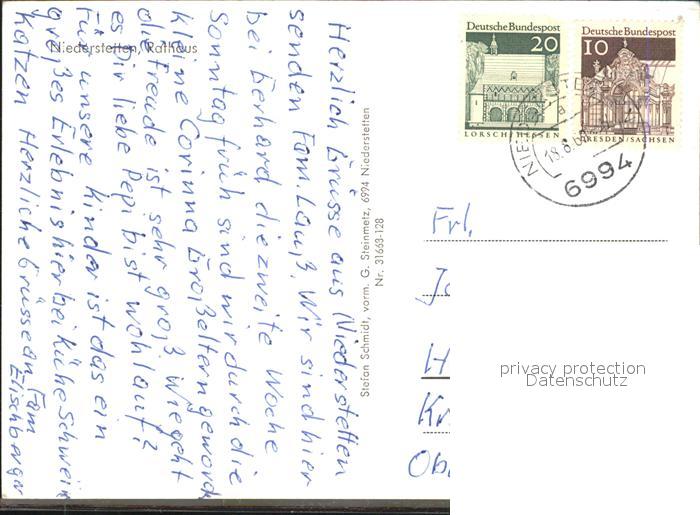 Niederstetten, Rathaus
Herzlich Grüsse aus Niederstetten
senden Fam. Lauß. Wir sind hier
bei Gerhard die zweite Woche
Sonntag früh sind wir durch die
kleine Corinna Großeltern geword
die Freude ist sehr groß Wie geht
es Dir liebe Pepi bist wohlauf?
Für unsere Kinder ist das ein
großes Erlebnis hier bei Kühe Schwein
Katzen Herzliche Grüsse an Fam
Stefan Schmidt, vorm. G. Steinmetz, 6994 Niederstetten
Nr. 31663-128
Deutsche Bundespost
20
LORSCH/HESSEN
Deutsche Bundespost
10
DRESDEN/SACHSEN
6994
Frl.
privacy protection
Datenschutz